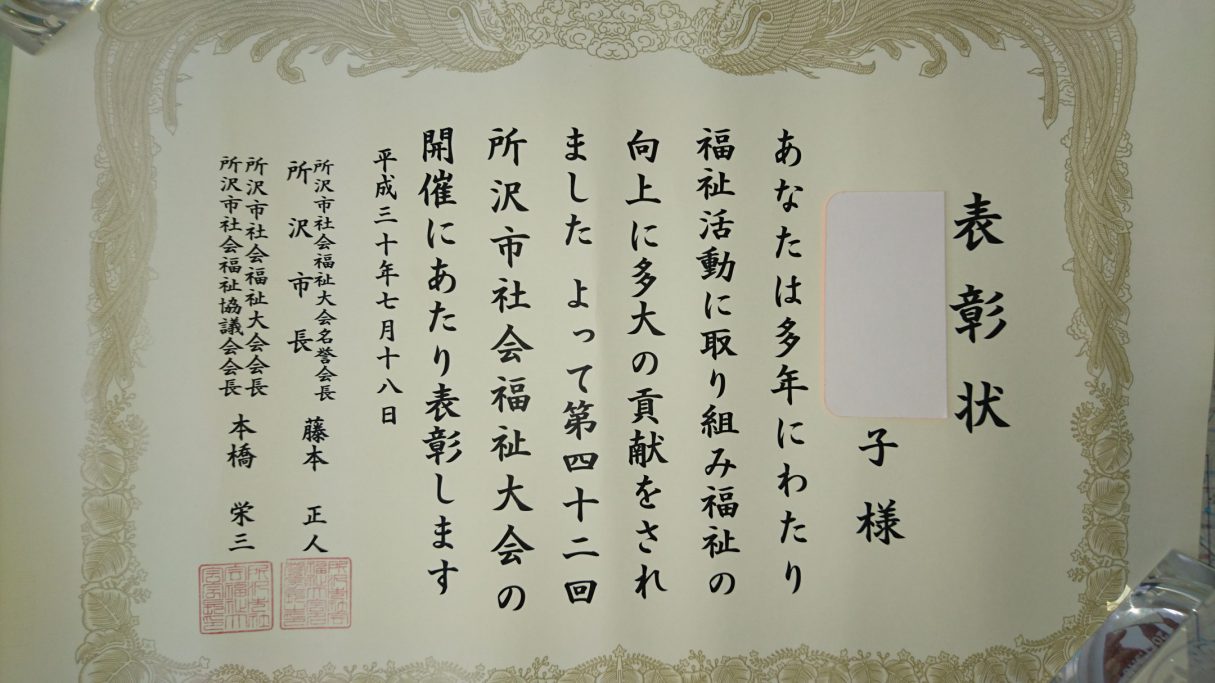 表彰状
子様
あなたは多年にわたり
福祉活動に取り組み福祉の
向上に多大の貢献をされ
ました よって第四十二回
所沢市社会福祉大会の
開催にあたり表彰します
平成三十年七月十八日
所沢市社会福祉大会名誉会長
所沢市長 藤本 正人
所沢市社会福祉大会会長
所沢市社会福祉協議会会長 本橋 栄三